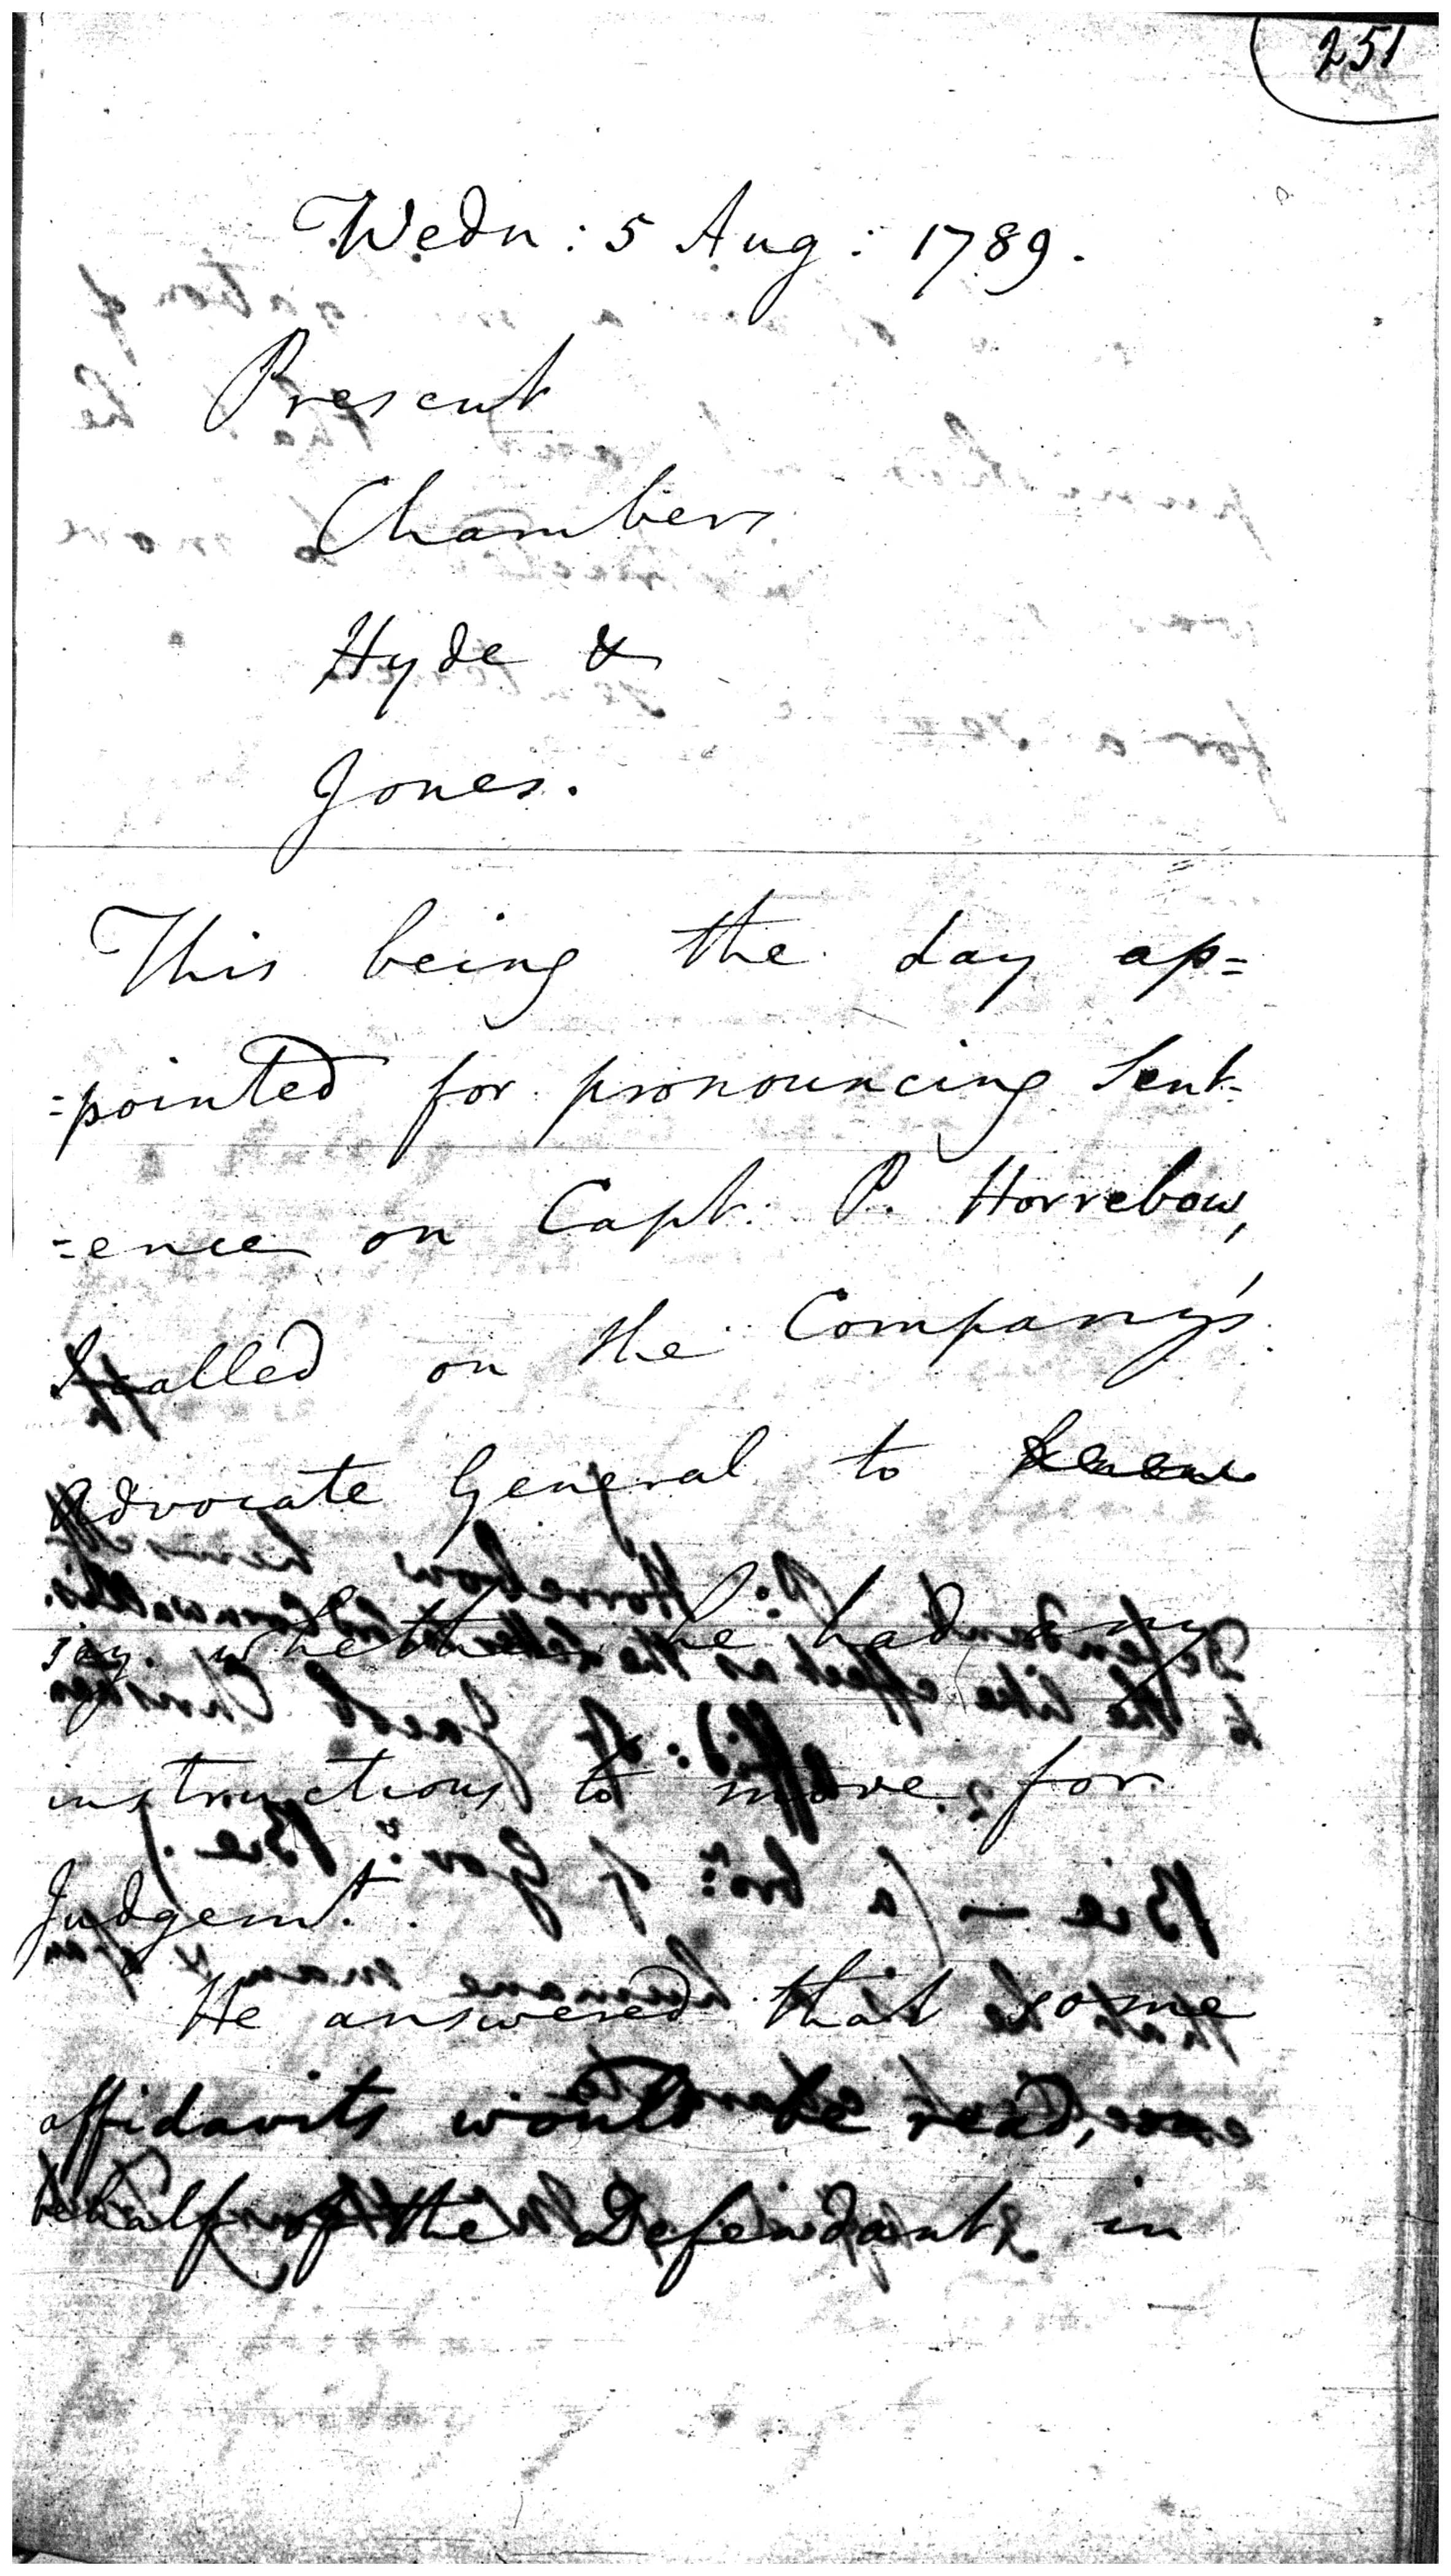 251
Wedn: 5 Aug: 1789.
Present
Chambers
Hyde &
Jones.
This being the day ap=
=pointed for pronouncing Sent=
=ence on Capt. P. Horrebow,
I called on the Company's
Advocate General to
say whether he had any
instructions to move for
Judgem.t.
He answered that some
affidavits would be read,
behalf of the Defendant, in